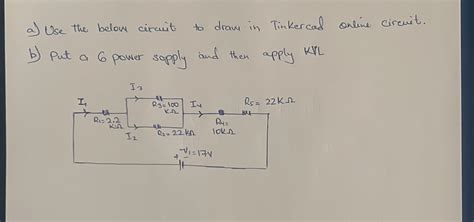 a) Use the below circuit to draw in Tinkercad online circuit.
b) Put a 6 power supply and then apply KVL
I3
I1
R3=100
KΩ
I4
R5= 22KΩ
R1=2.2
KΩ
I2
R2=22KΩ
R4=
10KΩ
V1=17V
+ -